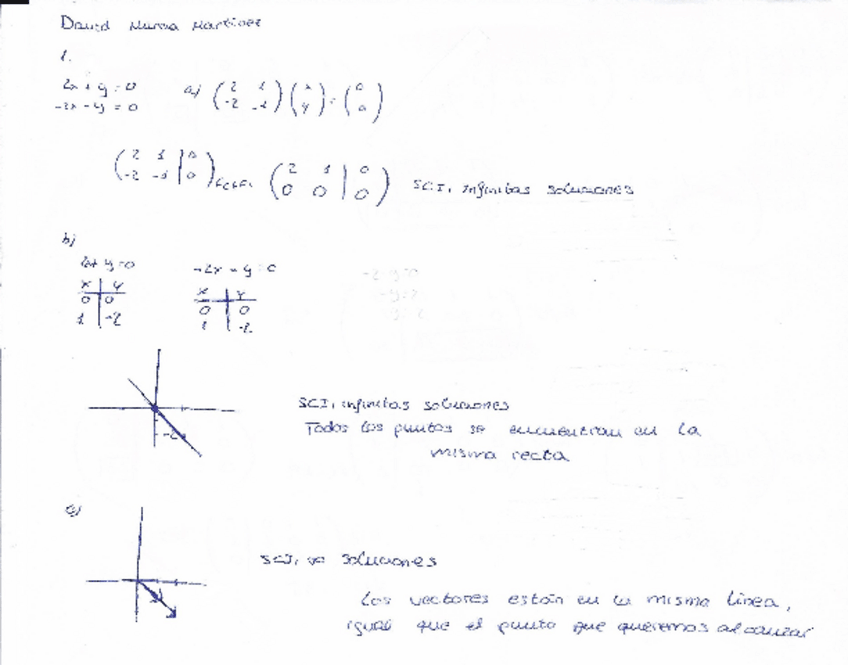 David Murcia Martínez
1.
2x + y = 0
-2x - y = 0
a) (2 1 / -2 -1) (x / y) = (0 / 0)
(2 1 | 0 / -2 -1 | 0) (2 1 | 0 / 0 0 | 0) SCI, infinitas soluciones
b)
2x + y = 0 -2x - y = 0
x | y x | y
0 | 0 0 | 0
1 | -2 1 | -2
SCI, infinitas soluciones
Todos los puntos se encuentran en la
misma recta
-2
c)
SCI, ∞ soluciones
Los vectores están en la misma línea,
igual que el punto que queremos alcanzar